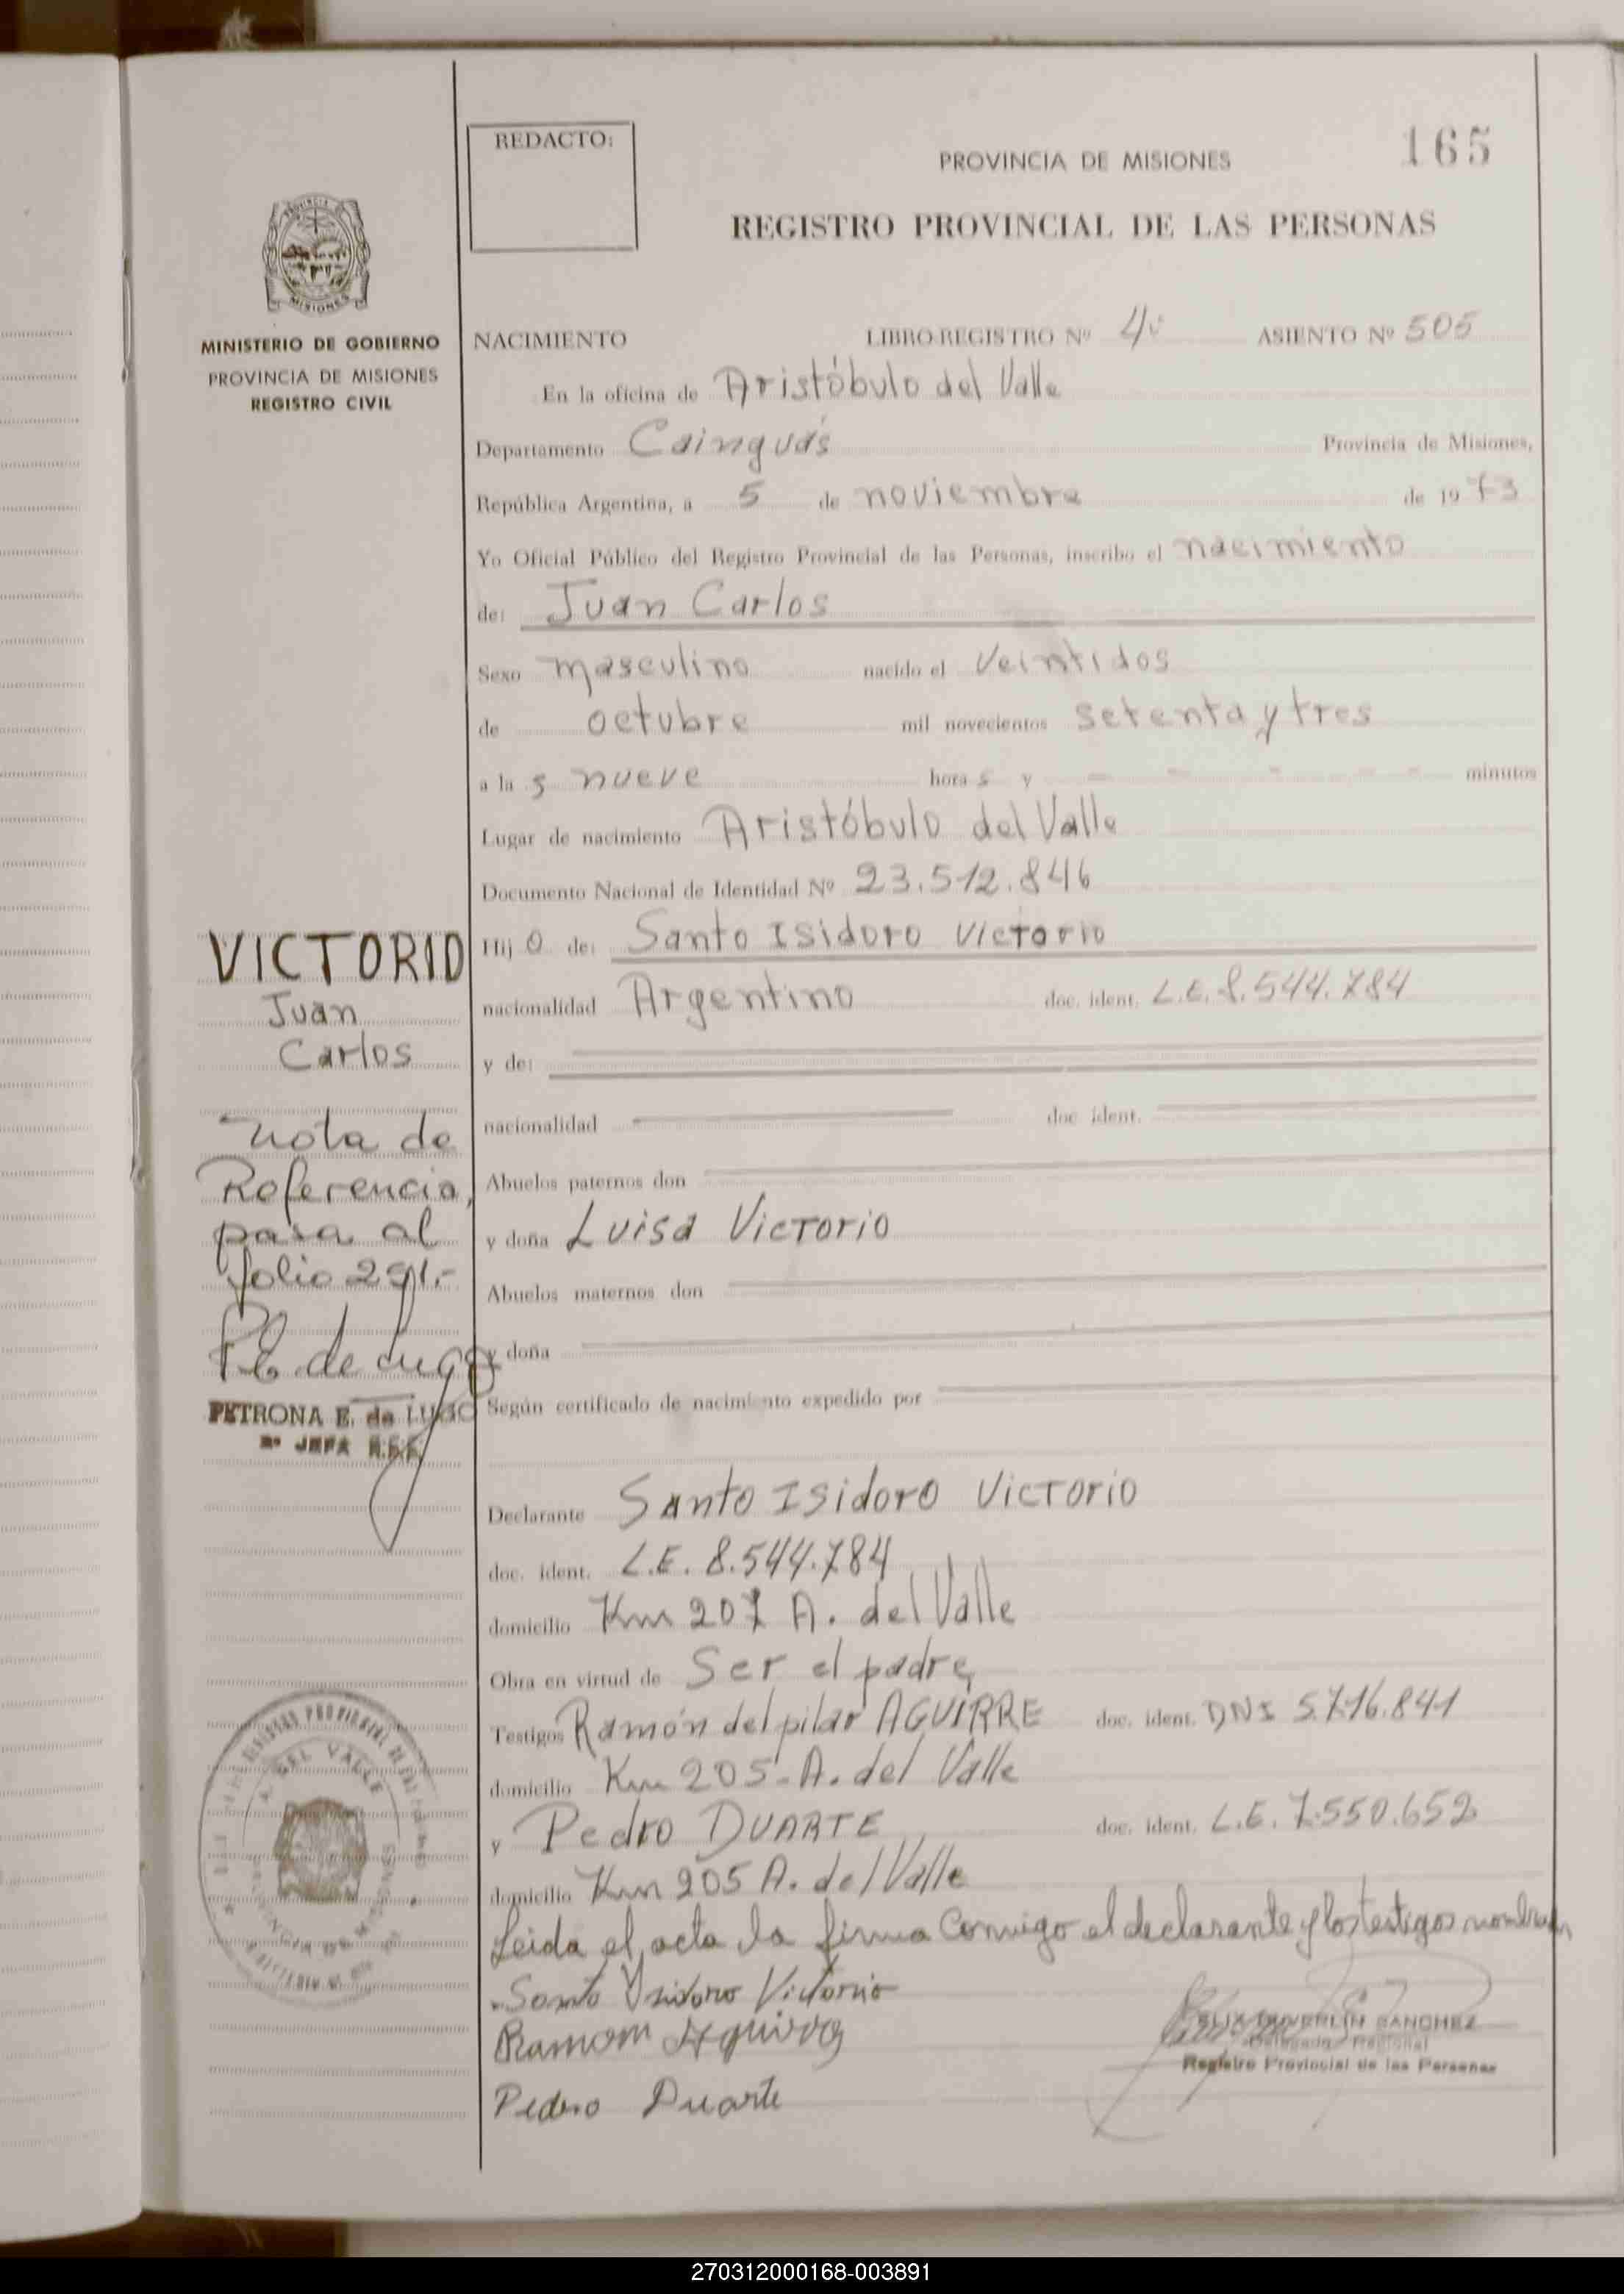 165
REDACTO:
PROVINCIA DE MISIONES
REGISTRO PROVINCIAL DE LAS PERSONAS
MISIONES
MINISTERIO DE GOBIERNO
PROVINCIA DE MISIONES
REGISTRO CIVIL
NACIMIENTO LIBRO REGISTRO Nº 4º ASIENTO Nº 505
En la oficina de Aristóbulo del Valle
Departamento Cainguás Provincia de Misiones,
República Argentina, a 5 de noviembre de 1973
Yo Oficial Público del Registro Provincial de las Personas, inscribo el nacimiento
de: Juan Carlos
Sexo masculino nacido el veintidos
de octubre mil novecientos setenta y tres
a la s nueve hora s y - - - - - minutos
Lugar de nacimiento Aristóbulo del Valle
Documento Nacional de Identidad Nº 23.512.846
Hij o de: Santo Isidoro Victorio
nacionalidad Argentino doc. ident. L.E. 8.544.784
y de:
nacionalidad doc. ident.
Abuelos paternos don
y doña Luisa Victorio
Abuelos maternos don
y doña
Según certificado de nacimiento expedido por
Declarante Santo Isidoro Victorio
doc. ident. L.E. 8.544.784
domicilio Km 207 A. del Valle
Obra en virtud de Ser el padre
Testigos Ramón del pilar AGUIRRE doc. ident. DNI 5.716.841
domicilio Km 205 - A. del Valle
y Pedro DUARTE doc. ident. L.E. 7.550.652
domicilio Km 205 A. del Valle
Leida el acta la firma conmigo el declarante y los testigos nombrados
Santo Ysidoro Victorio
Ramom Aguirre
Pedro Duarte
SANCHEZ
Delegado Regional
Registro Provincial de las Personas
VICTORIO
Juan
Carlos
Nota de
Referencia,
pasa al
folio 291.-
P.E. de Lugo
PETRONA E. de LUGO
2º JEFA
A. DEL VALLE
270312000168-003891